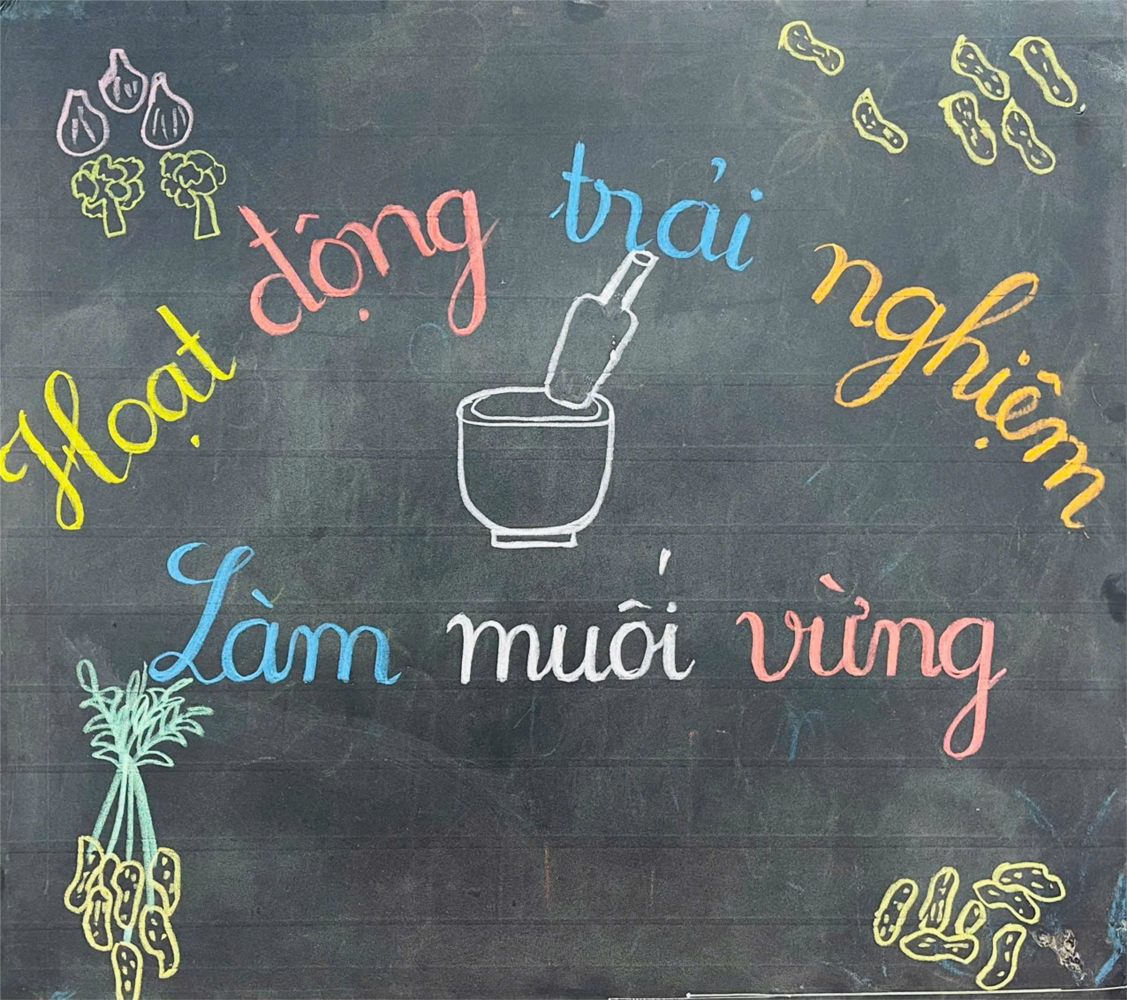 Hoạt động trải nghiệm
Làm muối vừng